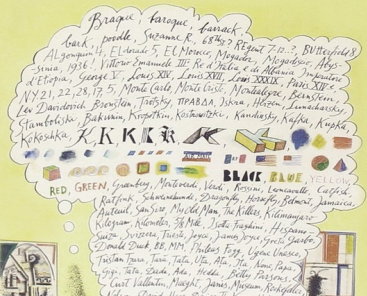 Braque, baroque, barrack,
bark, poodle, Suzanne R, 68th? Regent 7-10..?, Butterfield 8
Algonquin 4, Eldorado 5, El Morocco, Mogador, Mogadiscio, Abys-
sinia, 1936! Vittorio Emanuele III, Re d'Italia e di Albania, Imperatore
d'Etiopia, George V, Louis XIV, Louis XVII, Louis XXXIX, Paris XVIe,
NY 21, 22, 28, 17, 5, Monte Carlo, Monte Cristo, Montalegre, Bernstein,
Lev Davidovich Bronstein, Trotsky, ПРАВДА, Iskra, Herzen, Lunacharsky,
Stamboliski, Bakunin, Kropotkin, Kandinsky, Kafka, Kupka,
Kokoshka, K, K, K, K, K, K
AIR MAIL
BLACK, BLUE, YELLOW,
RED, GREEN, Greenberg, Monteverde, Verdi, Rossini, Leoncavallo, Catfish,
Ratfink, Dragonfly, Horsefly, Belmont, Jamaica,
Auteuil, San Siro, My Old Man, The Killers, Kilimanjaro
Kilogram, Kilometer, Hispano
Suiza, Svizzera, Trieste, Joyce, James Joyce, Greta Garbo,
Donald Duck, BB, MM, Phileas Fogg,
Tristan Tzara, Tara, Tata, Uta, Ata, The Alma, Papa,
Gigi, Tata, Dada, Ada, Hedda, Betty Parsons,
Curt Valentin, Maeght, Janis, Museum, Rockefeller,
Nelson